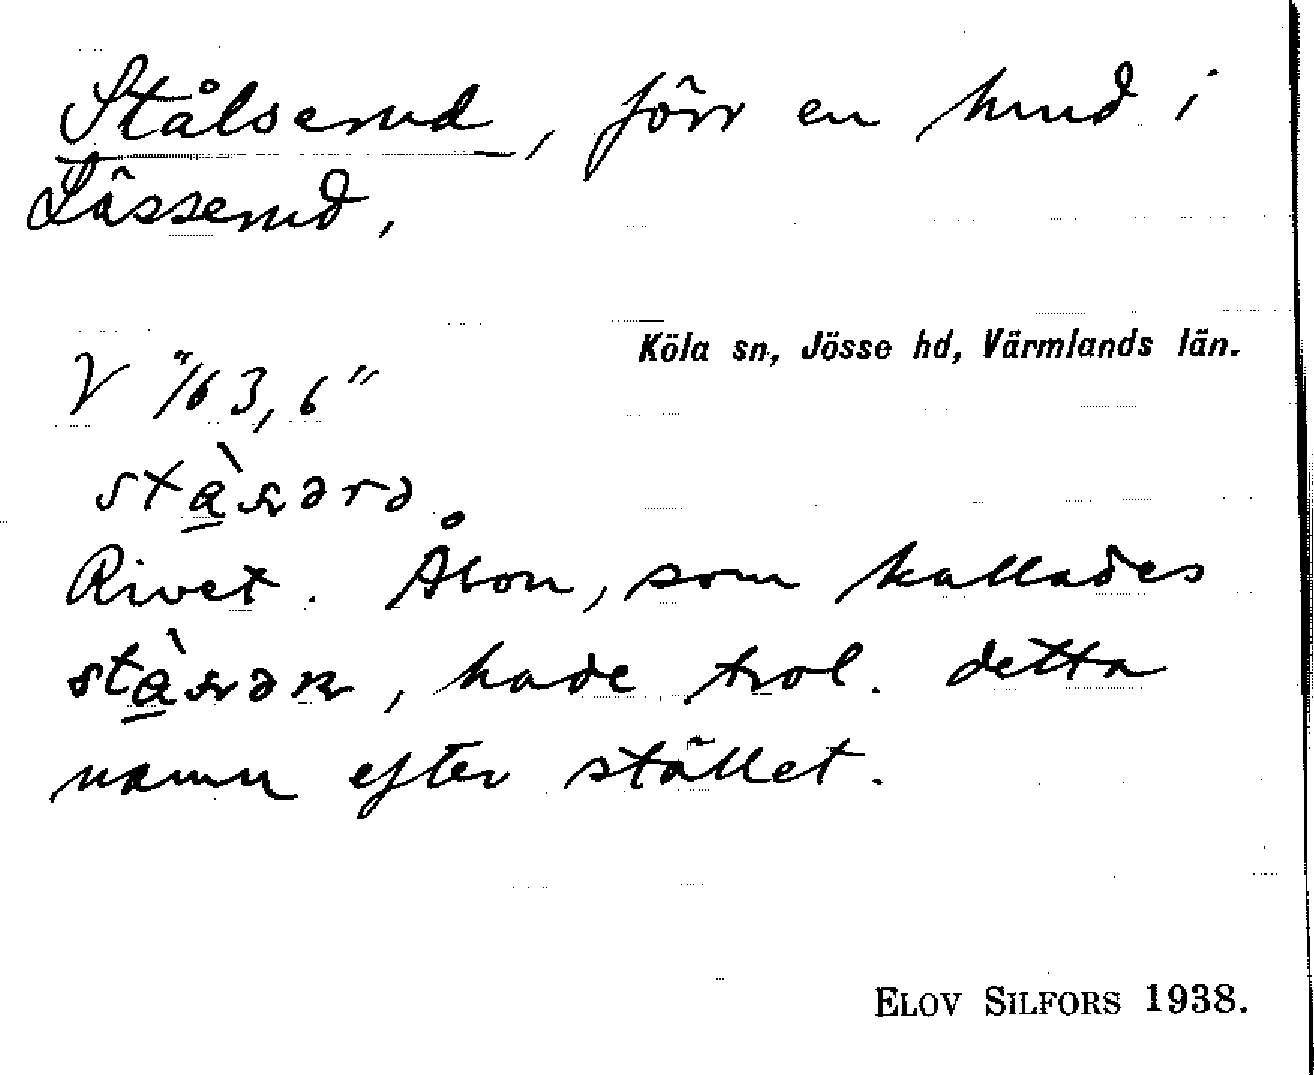 Stålserud, förr en hmd i
Låsserud.
Köla sn, Jösse hd, Värmlands län.
V "/63,6"
Rivet. Åbon, som kallades
, hade trol. detta
namn efter stället.
ELOV SILFORS 1938.